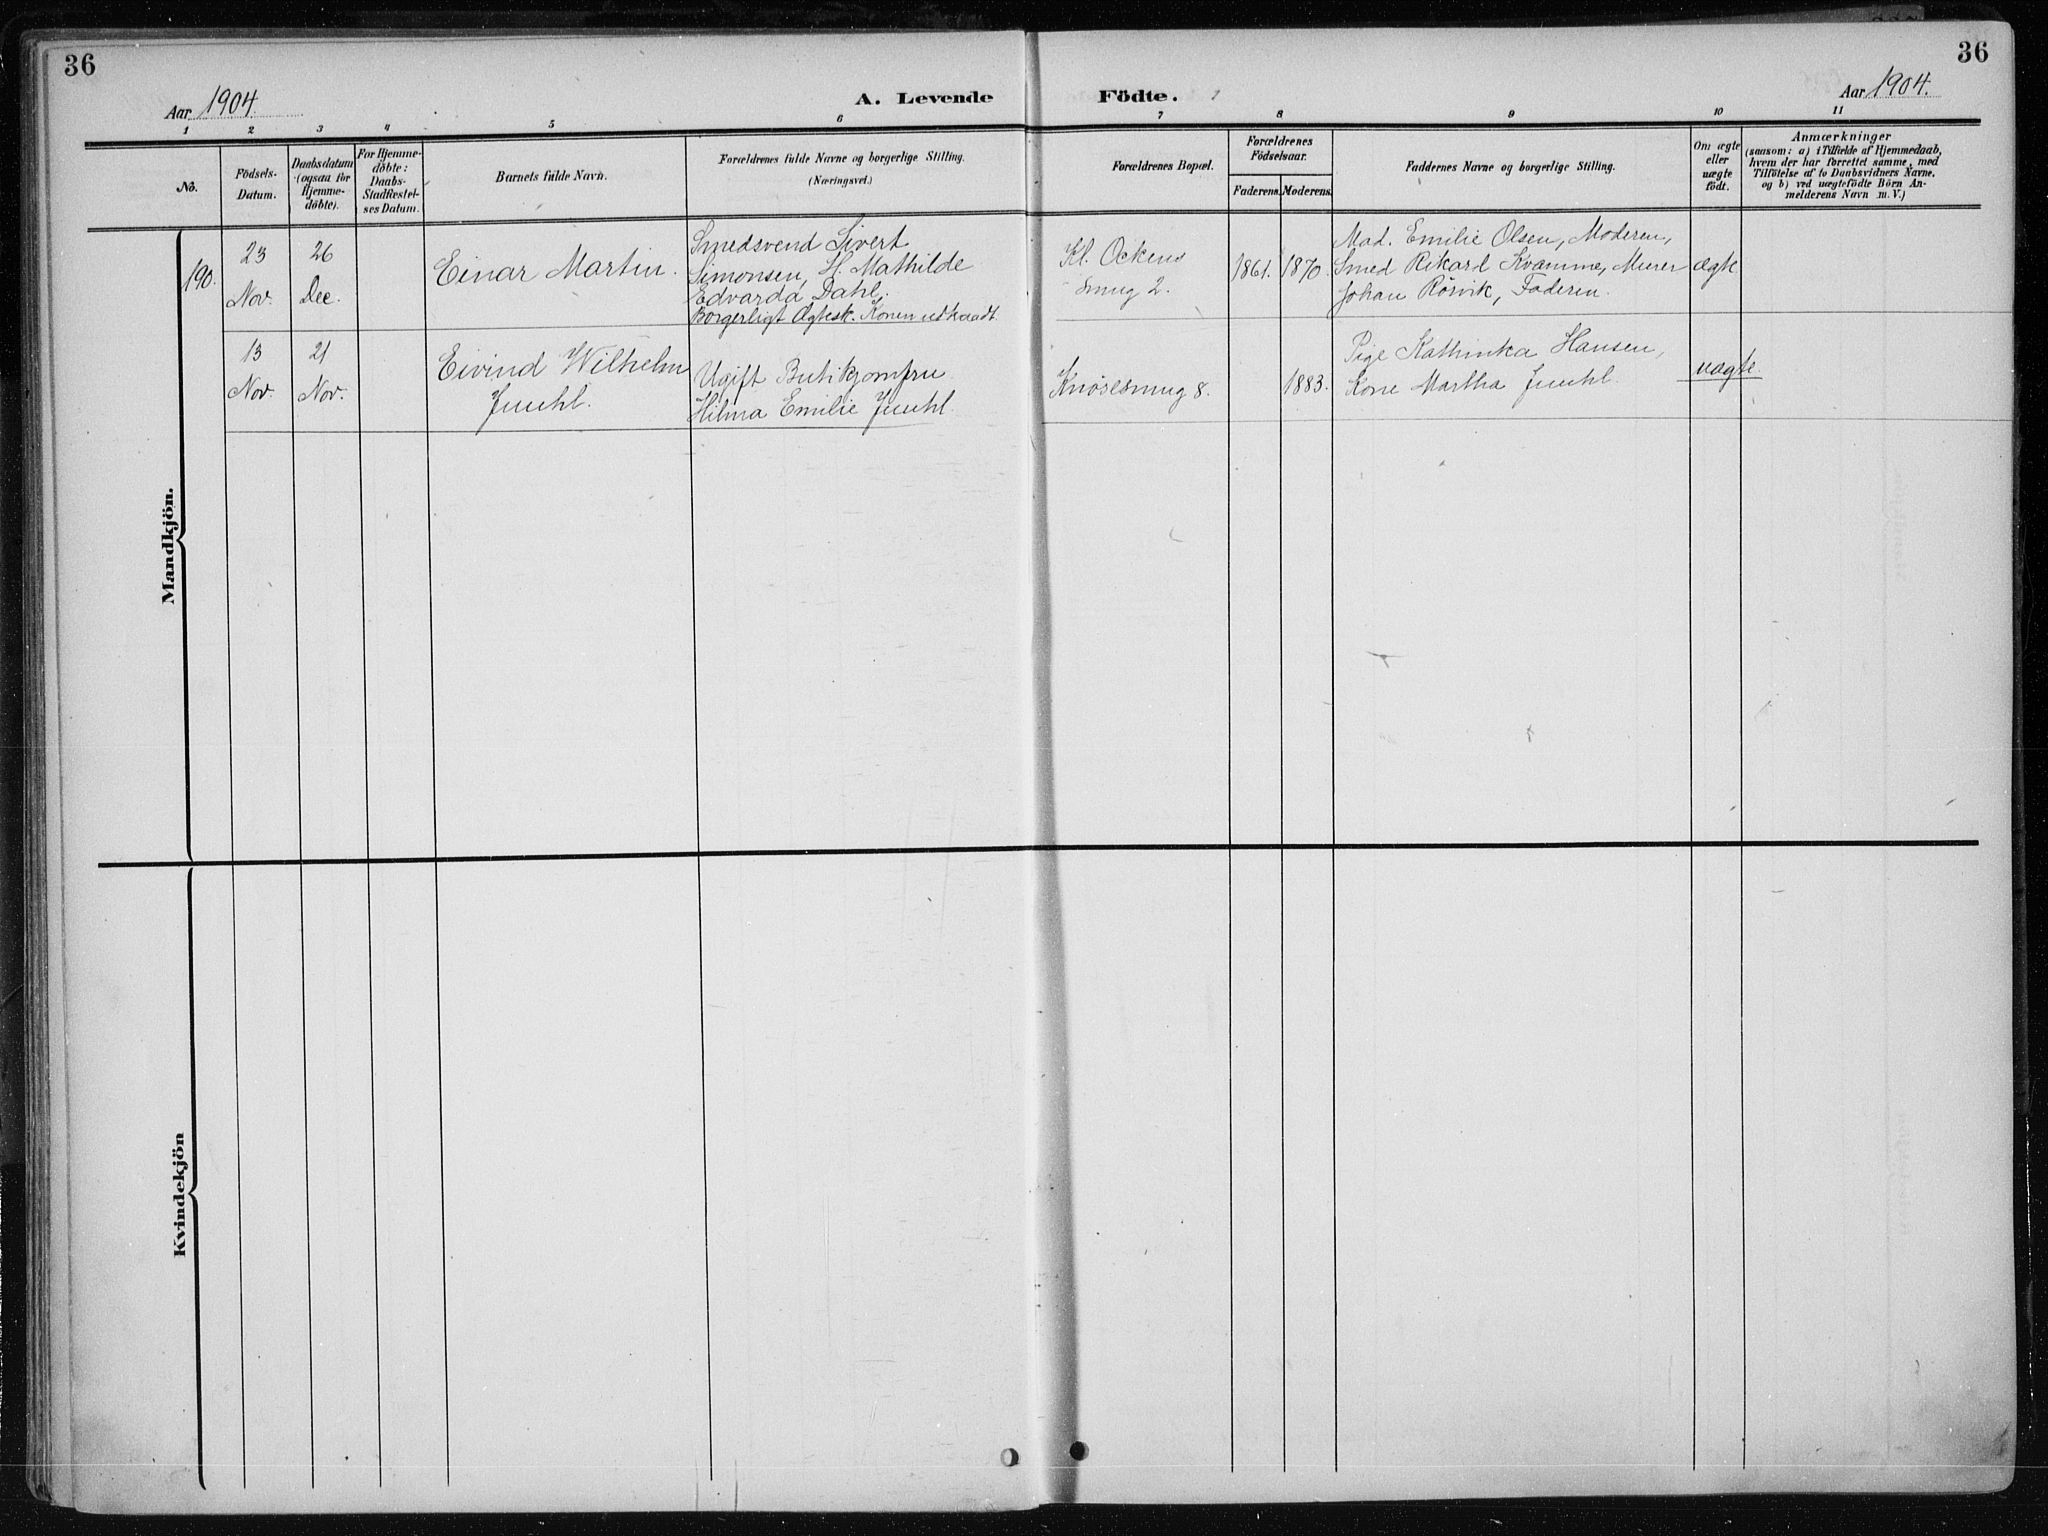 36
36
Aar 1904.
A. Levende
Födte.
Aar 1904.
1 2 3 4 5 6 7 8 9 10 11
No.
Födsels-
Datum.
Daabsdatum
(ogsaa for
Hjemme-
døbte).
For Hjemme-
døbte:
Daabs-
Stadfæstel-
ses Datum.
Barnets fulde Navn.
Forældrenes fulde Navne og borgerlige Stilling.
(Næringsvei.)
Forældrenes Bopæl.
Forældrenes
Födselsaar.
Faderens.
Moderens.
Faddernes Navne og borgerlige Stilling.
Om ægte
eller
uægte
födt.
Anmærkninger
(saasom: a) i Tilfælde af Hjemmedaab,
hvem der har forrettet samme, med
Tilföielse af to Daabsvidners Navne,
og b) ved uægtefödte Börn An-
melderens Navn m. V.)
Mandkjön.
190.
23
Nov.
26
Dec.
Einar Martin.
Smedsvend Sivert
Simonsen, H. Mathilde
Edvarda Dahl,
Borgerligt Ægtesk. Konen udtraadt.
Kl. Ockens
smug 2.
1861.
1870.
Mad. Emilie Olsen, Moderen,
Smed Rikard Kvamme, Murer
Johan Rørvik, Faderen.
ægte
13
Nov.
21
Nov.
Eivind Wilhelm
Juuhl.
Ugift Butikjomfru
Hilma Emilie Juuhl.
Knøsesmug 8.
1883.
Pige Kathinka Hansen,
Kone Martha Juuhl.
uægte
Kvindekjön